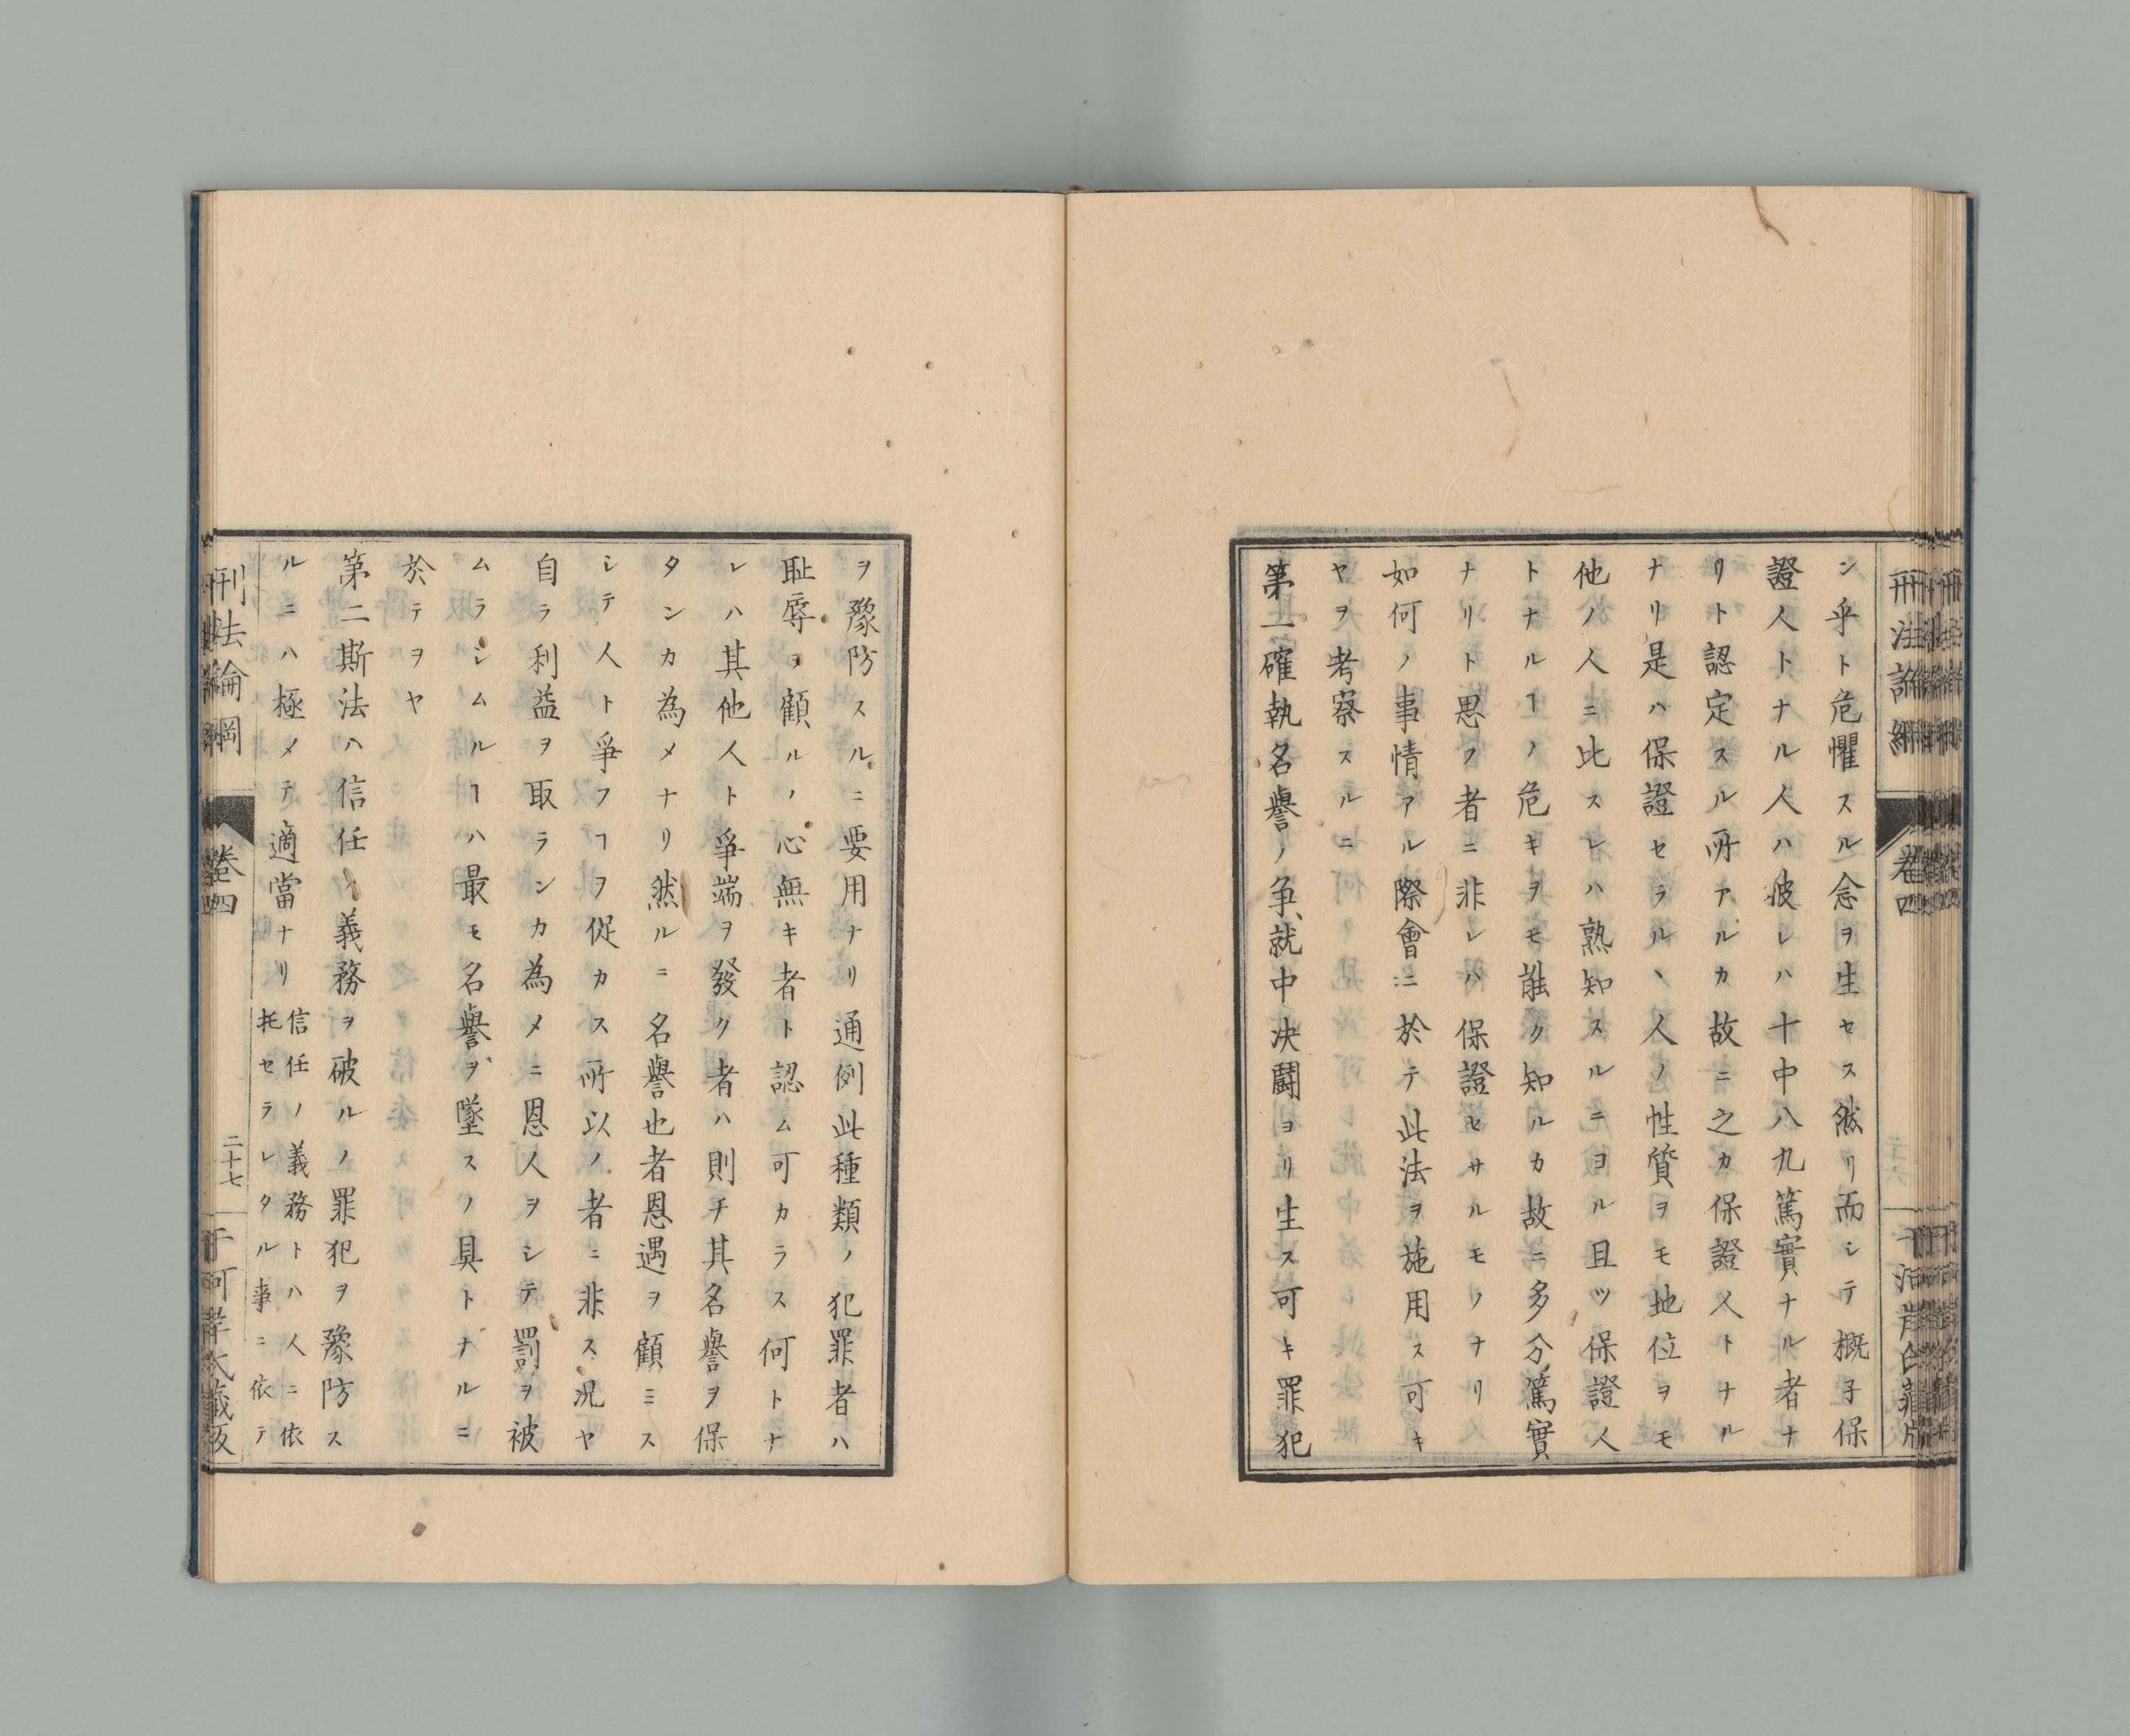 ン乎ト危懼スル念ヲ生セス然リ而シテ概子保
證人トナル人ハ彼レハ十中八九篤實ナル者ナ
リト認定スル所アルカ故ニ之カ保證人トナル
ナリ是ハ保證セラルヽ人ノ性質ヲモ地位ヲモ
他ノ人ニ比スレハ熟知スルニヨル且ツ保證人
トナルヿノ危キヲモ能ク知ルカ故ニ多分篤實
ナリト思フ者ニ非レハ保證セサルモノナリ
如何ノ事情アル際會ニ於テ此法ヲ施用ス可キ
ヤヲ考察スルニ
第一確執名譽ノ争就中決闘ヨリ生ス可キ罪犯
ヲ豫防スルニ要用ナリ通例此種類ノ犯罪者ハ
耻辱ヲ顧ルノ心無キ者ト認ム可カラス何トナ
レハ其他人ト爭端ヲ發ク者ハ則チ其名譽ヲ保
タンカ為メナリ然ルニ名譽也者恩遇ヲ顧ミス
シテ人ト爭フヿヲ促カス所以ノ者ニ非ス况ヤ
自ラ利益ヲ取ランカ為メニ恩人ヲシテ罰ヲ被
ムラシムルヿハ最モ名譽ヲ墜スノ具トナルニ
於テヲヤ
第二斯法ハ信任ノ義務ヲ破ルノ罪犯ヲ豫防ス
ルニハ極メテ適當ナリ
信任ノ義務トハ人ニ依
托セラレタル事ニ依テ
刑法論綱
卷四
二十七